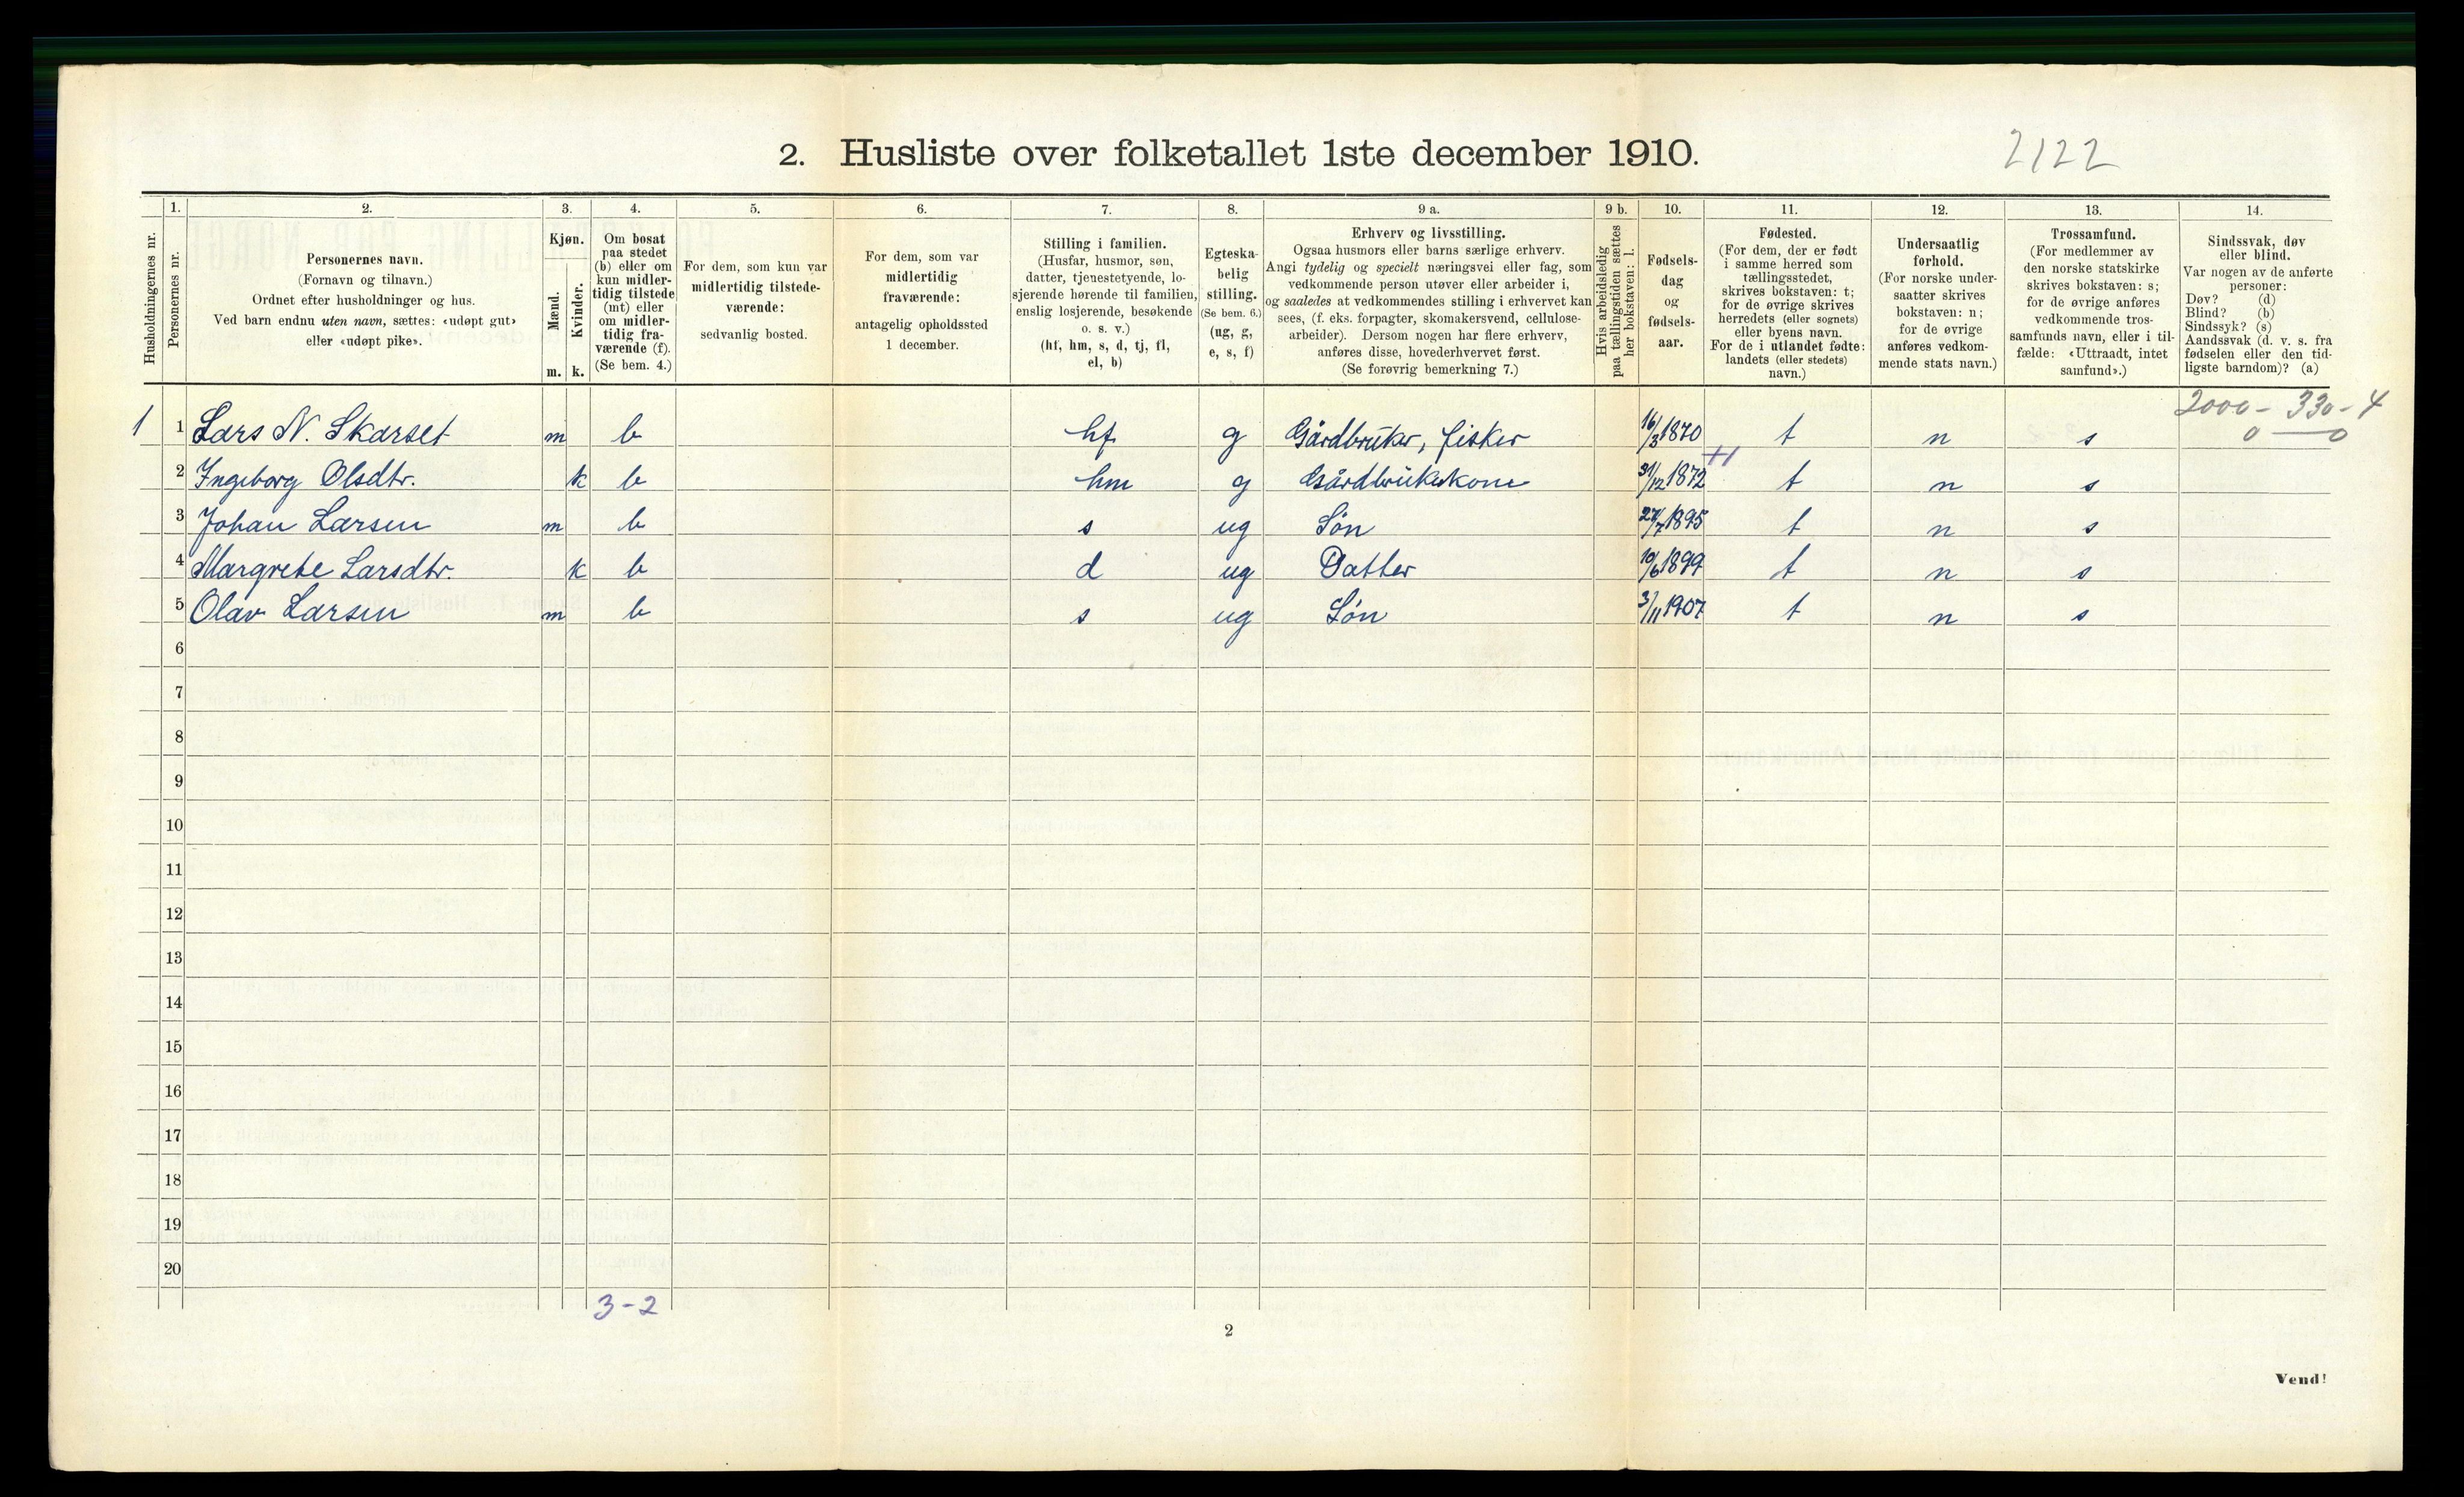 2. Husliste over folketallet 1ste december 1910.
2122
Husholdningernes nr.
1.
Personernes nr.
2.
Personernes navn.
(Fornavn og tilnavn.)
Ordnet efter husholdninger og hus.
Ved barn endnu uten navn, sættes: «udøpt gut»
eller «udøpt pike».
3.
Kjøn.
Mænd.
Kvinder.
m. k.
4.
Om bosat
paa stedet
(b) eller om
kun midler-
tidig tilstede
(mt) eller
om midler-
tidig fra-
værende (f).
(Se bem. 4.)
5.
For dem, som kun var
midlertidig tilstede-
værende:
sedvanlig bosted.
6.
For dem, som var
midlertidig
fraværende:
antagelig opholdssted
1 december.
7.
Stilling i familien.
(Husfar, husmor, søn,
datter, tjenestetyende, lo-
sjerende hørende til familien,
enslig losjerende, besøkende
o. s. v.)
(hf, hm, s, d, tj, fl,
el, b)
8.
Egteska-
belig
stilling.
(Se bem. 6.)
(ug, g,
e, s, f)
9 a.
Erhverv og livsstilling.
Ogsaa husmors eller barns særlige erhverv.
Angi tydelig og specielt næringsvei eller fag, som
vedkommende person utøver eller arbeider i,
og saaledes at vedkommendes stilling i erhvervet kan
sees, (f. eks. forpagter, skomakersvend, cellulose-
arbeider). Dersom nogen har flere erhverv,
anføres disse, hovederhvervet først.
(Se forøvrig bemerkning 7.)
9 b.
Hvis arbeidsledig
paa tællingstiden sættes
her bokstaven: l.
10.
Fødsels-
dag
og
fødsels-
aar.
11.
Fødested.
(For dem, der er født
i samme herred som
tællingsstedet,
skrives bokstaven: t;
for de øvrige skrives
herredets (eller sognets)
eller byens navn.
For de i utlandet fødte:
landets (eller stedets)
navn.)
12.
Undersaatlig
forhold.
(For norske under-
saatter skrives
bokstaven: n;
for de øvrige
anføres vedkom-
mende stats navn.)
13.
Trossamfund.
(For medlemmer av
den norske statskirke
skrives bokstaven: s;
for de øvrige anføres
vedkommende tros-
samfunds navn, eller i til-
fælde: «Uttraadt, intet
samfund».)
14.
Sindssvak, døv
eller blind.
Var nogen av de anførte
personer:
Døv? (d)
Blind? (b)
Sindssyk? (s)
Aandssvak (d. v. s. fra
fødselen eller den tid-
ligste barndom)? (a)
2000 - 330 - 4
0 — 0
1 1 Lars N. Skarset m b hf g Gårdbruker, fisker 16/3 1870 t n s
2 Ingeborg Olsdtr. k b hm g Gårdbrukerkone 31/12 1872 t n s
3 Johan Larsen m b s ug Søn 27/7 1895 t n s
4 Margrete Larsdtr. k b d ug Datter 10/6 1899 t n s
5 Olav Larsen m b s ug Søn 3/11 1907 t n s
6
7
8
9
10
11
12
13
14
15
16
17
18
19
20
3-2
2
Vend!